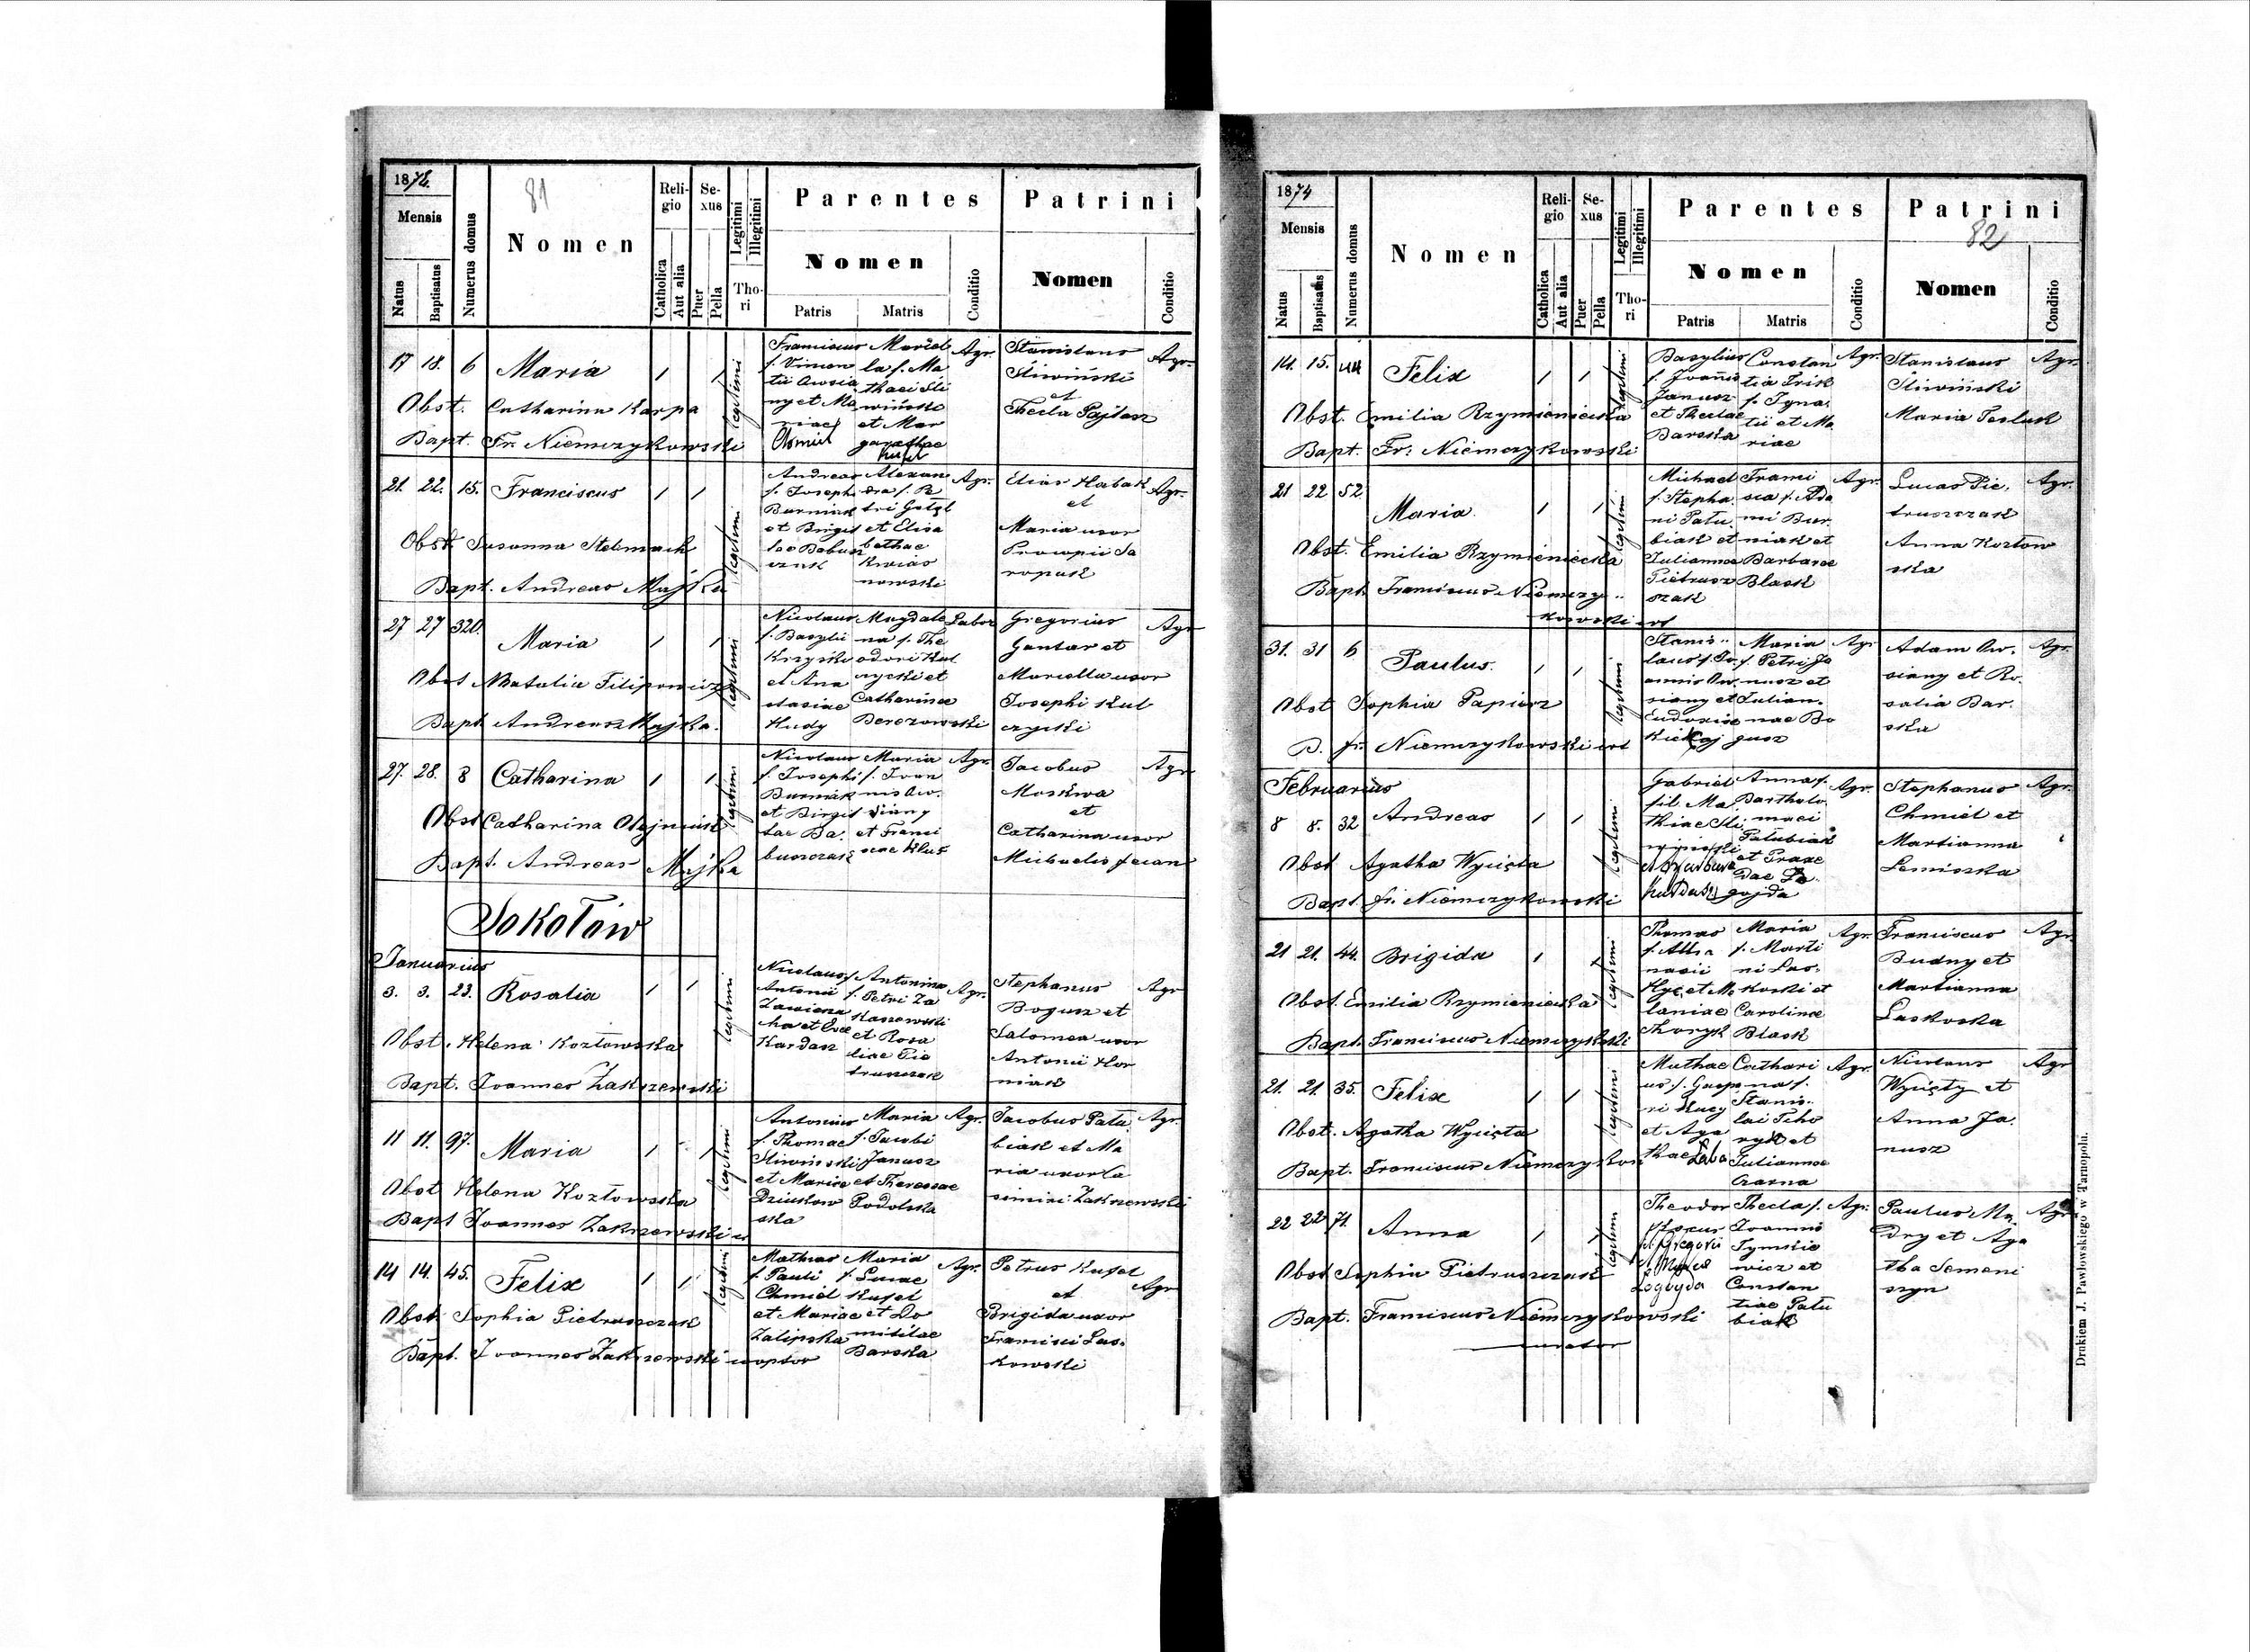 1874.
81
Mensis
Natus
Baptisatus
Numerus domus
Nomen
Religio
Catholica
Aut alia
Sexus
Puer
Puella
Legitimi
Illegitimi
Thori
Parentes
Nomen
Patris
Matris
Conditio
Patrini
Nomen
Conditio
17 18. 6 Maria
Obst. Catharina Karpa
Bapt. Fr. Niemczykowski
legitimi
Franciscus
f. Vincen
tii Owsia
ny et Ma
riae
Chmiel
Marcel
la f. Ma
thaei Sli
wiński
et Mar
garethae
Kusel
Agr.
Stanislaus
Śliwiński
et
Thecla Pajtasz
Agr.
21. 22. 15. Franciscus
Obst. Susanna Stelmach
Bapt. Andreas Majka
legitimi
Andreas
f. Josephi
Burniak
et Birgit
tae Babusz
czak
Alexan
dra f. Pe
tri
et Elisa
bethae
Kwias
nowski
Agr.
Elias Hatak
et
Maria uxor
Procopii Sa
ropuk
Agr.
27 27 320. Maria
Obst Natalia Filipowicz
Bapt Andreas Majka.
legitimi
Nicolaus
f. Basylii
Krzyski
et Ana
stasiae
Hudy
Magdale
na f. The
odori Kul
czycki et
Catharinae
Berezowski
Labor
Gregorius
Gontar et
Marcella uxor
Josephi Kul
czycki
Agr
27. 28. 8 Catharina
Obst Catharina Olejniuk
Bapt. Andreas Majka
legitimi
Nicolaus
f. Josephi
Burniak
et Birgit
tae Ba.
buszczak
Maria
f. Joan
nis Ow.
siany
et Franci
scae Klus
Agr.
Jacobus
Moskwa
et
Catharina uxor
Michaelis
Agr
Sokołów
Januarius
3. 3. 23. Rosalia
Obst. Helena Kozłowska
Bapt. Joannes Zakrzewski
legitimi
Nicolaus f.
Antonii
Zawiera
cha et Evae
Kardasz
Antonina
f. Petri Za
Kaszewski
et Rosa
liae Pie
truszczak
Agr.
Stephanus
Bogusz et
Salomea uxor
Antonii Hor
niak
Agr
11 11. 97. Maria
Obst Helena Kozłowska
Bapt Joannes Zakrzewski
legitimi
Antonius
f. Thomae
Sliwiński
et Mariae
Dziukow
ska
Maria
f. Jacobi
Janusz
et Theressae
Podolska
Agr.
Jacobus Pału
biak et Ma
ria uxor Ca
simiri Zakrzewski
Agr.
14 14. 45. Felix
Obst. Sophia Pietruszczak
Bapt. Joannes Zakrzewski
legitimi
Mathias
f. Pauli
Chmiel
et Mariae
Zalipska
Maria
f. Lucae
Kusel
et Do
mitilae
Barska
Agr.
Petrus Kusel
et
Brigida uxor
Francisci Las.
kowski
Agr
1874
Mensis
Natus
Baptisatus
Numerus domus
Nomen
Religio
Catholica
Aut alia
Sexus
Puer
Puella
Legitimi
Illegitimi
Thori
Parentes
Nomen
Patris
Matris
Conditio
Patrini
82
Nomen
Conditio
14. 15. 44 Felix
Obst. Emilia Rzymieniecka
Bapt. Fr: Niemczykowski
legitimi
Basylius
f. Joannis
Janusz
et Theclae
Barska
Constan
tia
f. Igna.
tii et Ma.
riae
Agr.
Stanislaus
Śliwiński
Maria Tesluk
Agr.
21 22 52. Maria
Obst. Emilia Rzymieniecka
Bapt. Franciscus Niemczy
kowski
legitimi
Michael
f. Stepha.
ni Pału.
biak et
Juliannae
Pietrusz
czak
Franci
sca f. Ada
mi Bur.
niak et
Barbarae
Blask
Agr.
Lucas Pie.
truszczak
Anna Kozłow
ska
Agr.
31. 31 6 Paulus.
Obst Sophia Papiesz
B. fr. Niemczykowski
legitimi
Stanis
laus f. Jo.
annis Ow.
siany et
Eudoxiae
Maria
f. Petri Ja
nusz et
Julian.
nae Bo
gusz
Agr
Adam Ow.
siany et Ro.
salia Bar.
ska
Agr.
Februarius
8 8. 32 Andreas
Obst Agatha Wycięta
Bapt fr. Niemczykowski
legitimi
Gabriel
fil. Ma
thiae Sli
wiński
et Barbara
Kardasz
Anna f.
Bartholo.
maei
Pałubiak
et Praxe
dae
Agr.
Stephanus
Chmiel et
Martianna
Lemiszka
Agr.
21 21. 44. Brigida
Obst. Emilia Rzymieniecka
Bapt. Franciscus Niemczykowski
legitimi
Thomas
f. Atha
nasii
Hyc et Me
laniae
Maria
f. Marti
ni Las.
koski et
Carolinae
Blask
Agr.
Franciscus
Budny et
Martianna
Laskoska
Agr
21. 21. 35. Felix
Obst. Agatha Wycięta
Bapt. Franciscus Niemczykow
legitimi
Mathae
us f. Gaspa
ri
et Aga
thae
Cathari
na f.
Stanis.
lai
et
Juliannae
Czarna
Agr.
Nicolaus
Wycięty et
Anna Ja.
nusz
Agr
22 22 71. Anna
Obst Sophia Pietruszczak
Bapt. Franciscus Niemczykowski
legitimi
Theodor
fil. Gregorii
Thecla f.
Joannis
Tymkie
wicz et
Constan
tiae Pału
biak
Agr.
Paulus Mą
dry et Aga
tha Semeni
szyn
Agr
Drukiem J. Pawłowskiego w Tarnopolu.